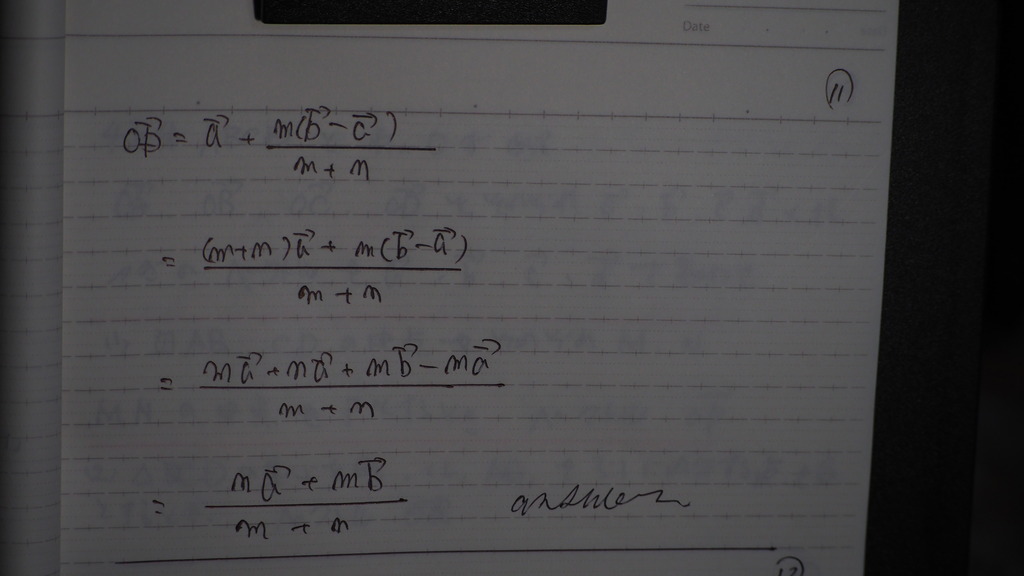 Date
11
OB⃗ = a⃗ + m(b⃗ - a⃗) / m + n
= (m+n)a⃗ + m(b⃗ - a⃗) / m + n
= ma⃗ + na⃗ + mb⃗ - ma⃗ / m + n
= na⃗ + mb⃗ / m + n answer
12